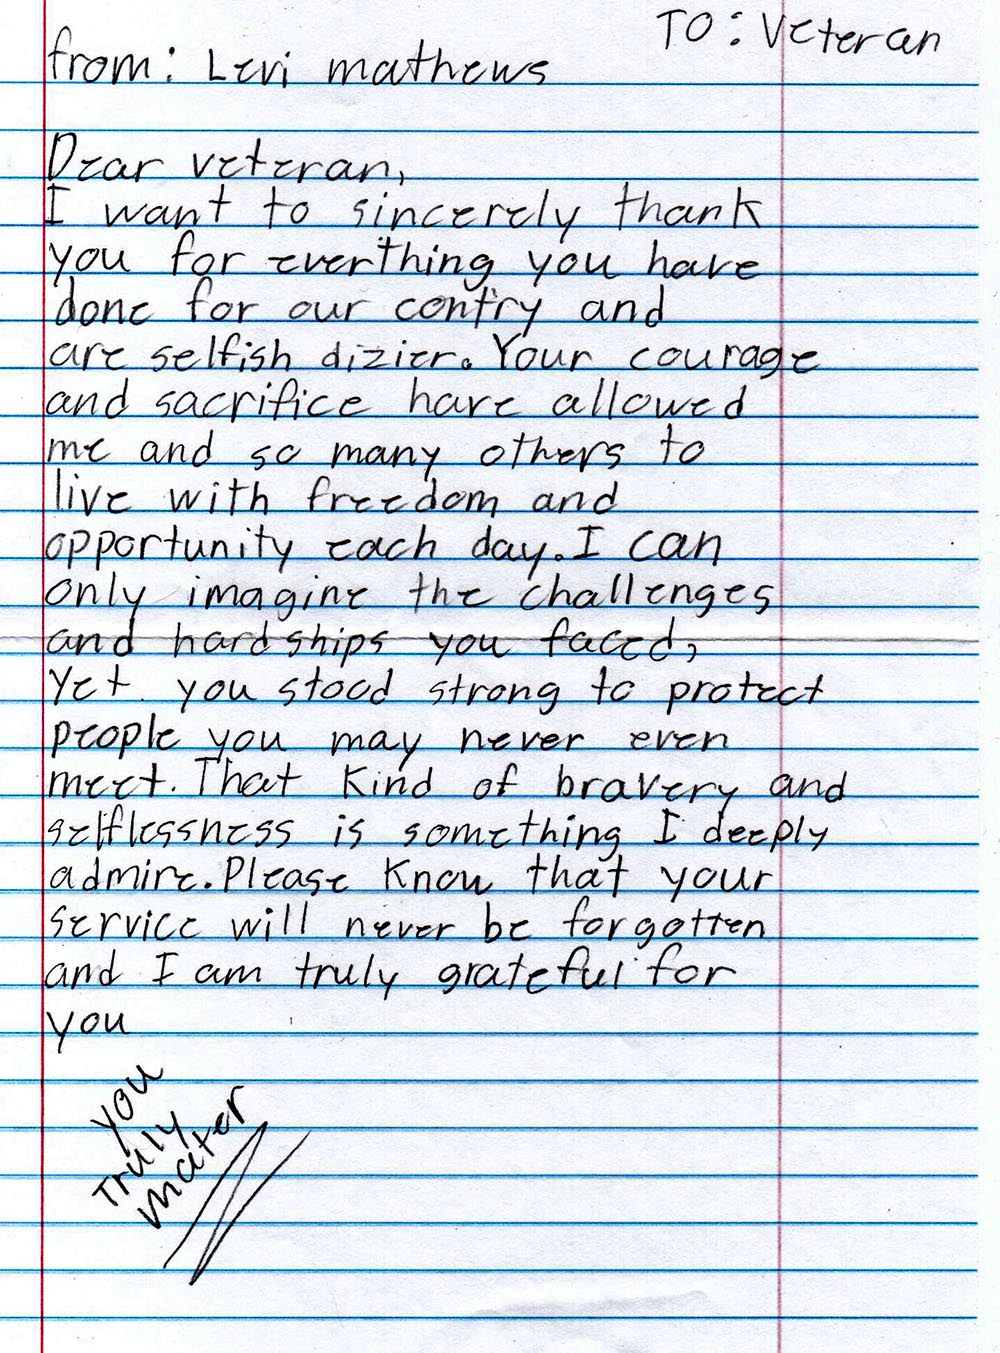 TO: Veteran
from: Levi mathews
Dear veteran,
I want to sincerely thank
you for everthing you have
done for our contry and
are selfish dizier. Your courage
and sacrifice have allowed
me and so many others to
live with freedom and
opportunity each day. I can
only imagine the challenges
and hardships you faced,
Yet you stood strong to protect
people you may never even
meet. That kind of bravery and
selflessness is something I deeply
admire. Please know that your
service will never be forgotten
and I am truly grateful for
you
you
Truly
mater